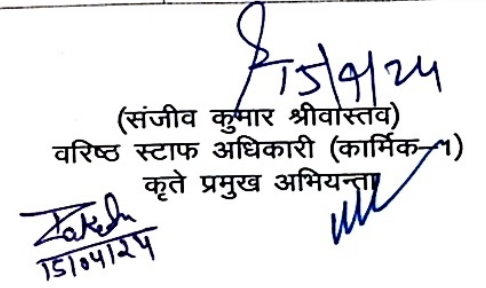 15/4/24
(संजीव कुमार श्रीवास्तव)
वरिष्ठ स्टाफ अधिकारी (कार्मिक-
कृते प्रमुख अभियन्ता
15/04/24